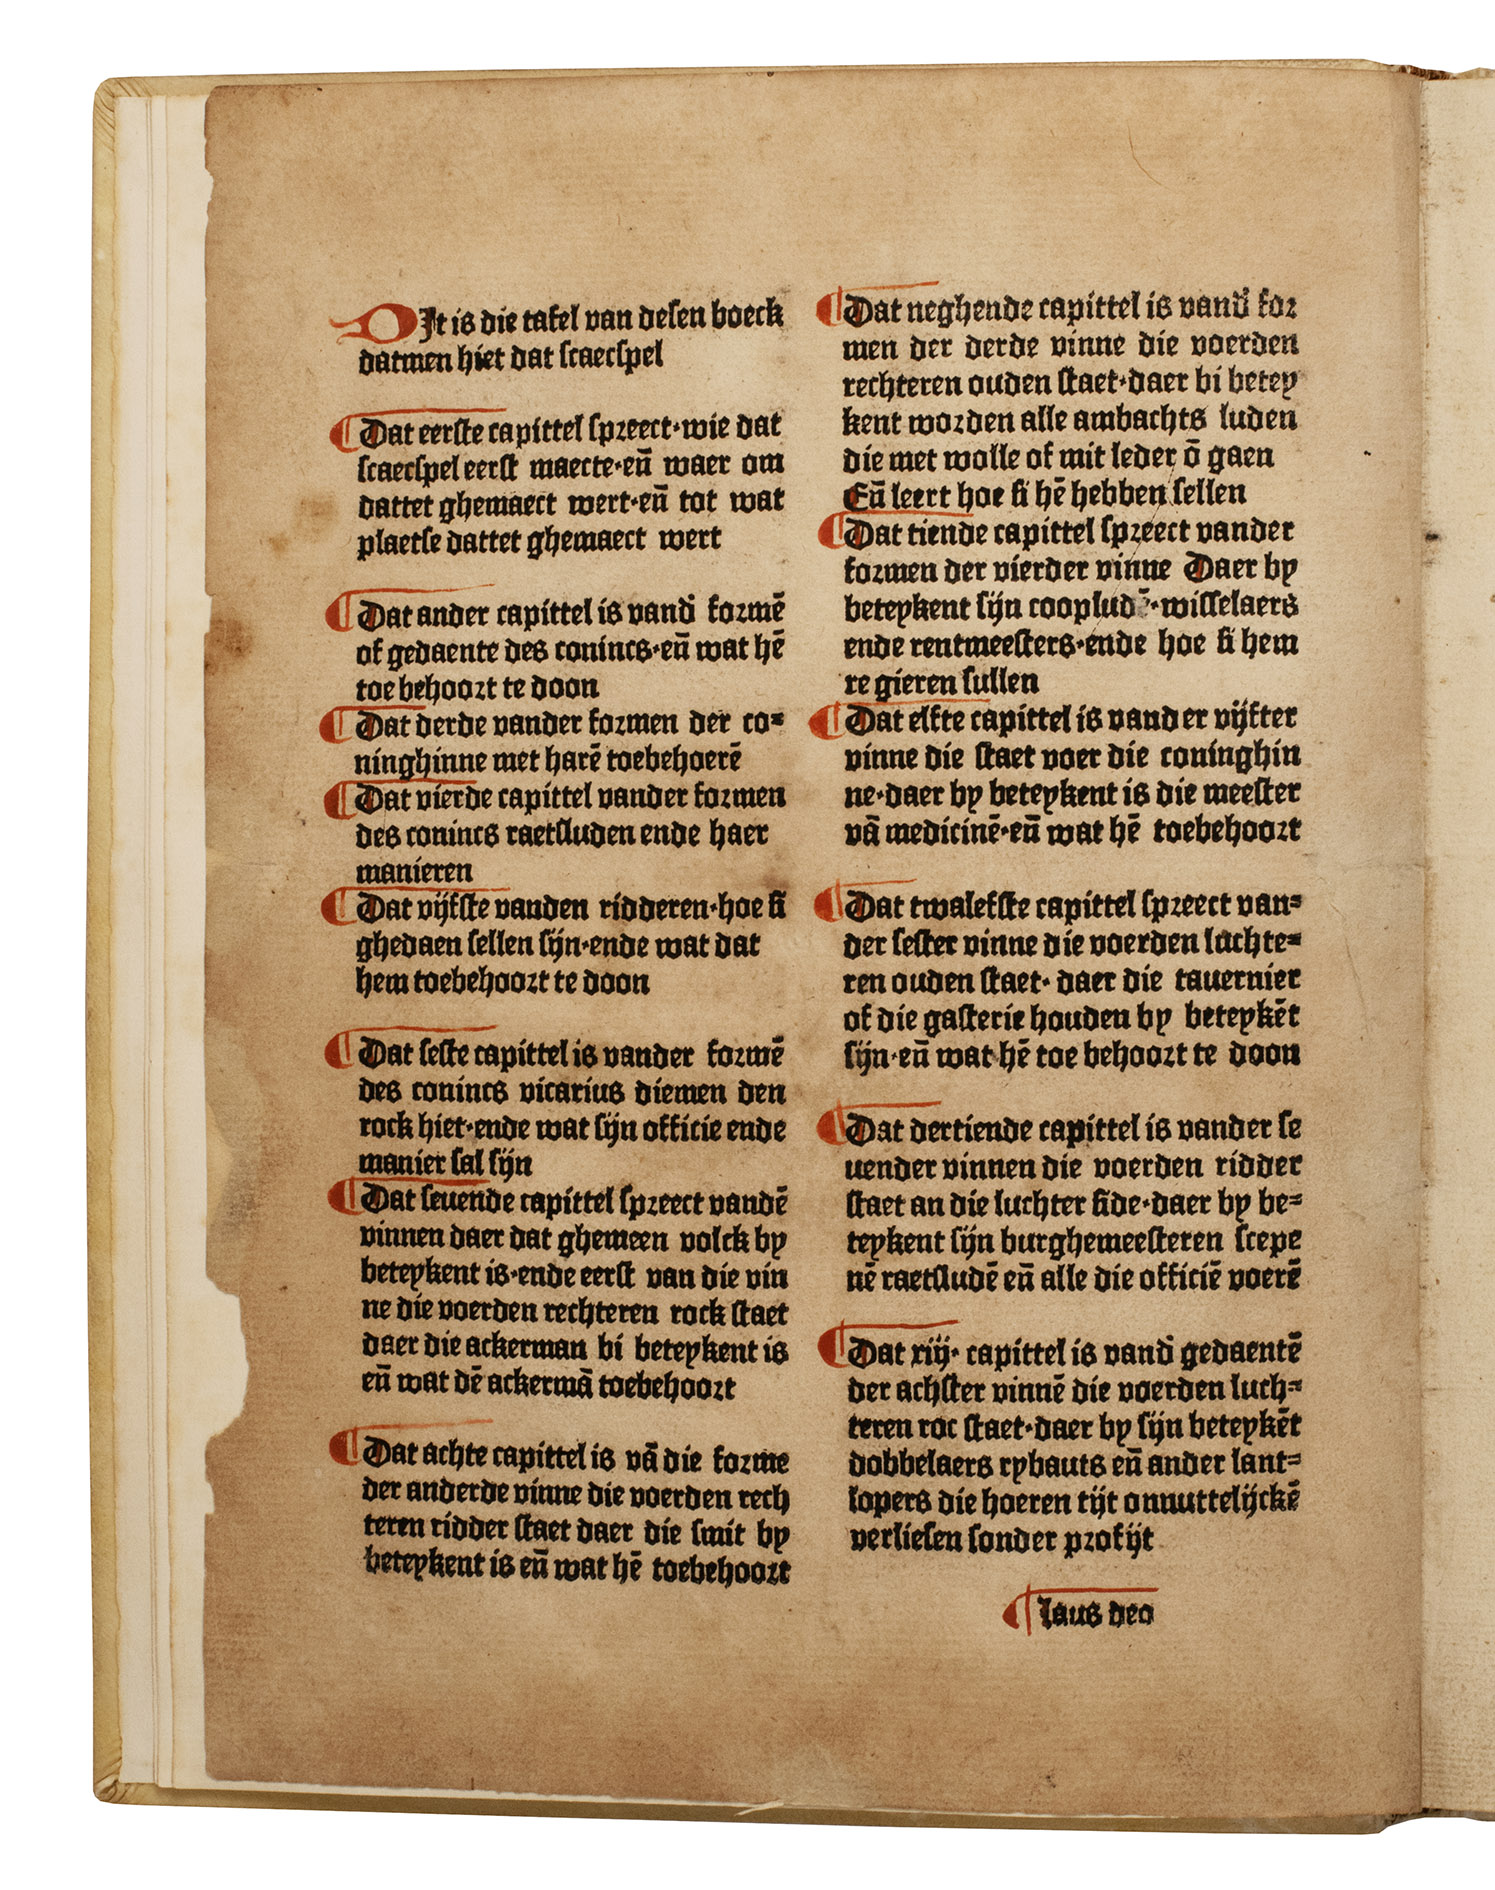 DIt is die tafel van desen boeck
datmen hiet dat scaecspel
Dat eerste capittel spreect·wie dat
scaecspel eerst maecte·eñ waer om
dattet ghemaect wert·eñ tot wat
plaetse dattet ghemaect wert
Dat ander capittel is vand̕ formē
of gedaente des conincs·eñ wat hē
toe behoort te doon
Dat derde vander formen der co⸗
ninghinne met harē toebehoerē
Dat vierde capittel vander formen
des conincs raetsluden ende haer
manieren
Dat vijfste vanden ridderen·hoe si
ghedaen sellen sijn·ende wat dat
hem toebehoort te doon
Dat seste capittel is vander formē
des conincs vicarius diemen den
rock hiet·ende wat sijn officie ende
manier sal sijn
Dat seuende capittel spreect vandē
vinnen daer dat ghemeen volck by
beteykent is·ende eerst van die vin
ne die voerden rechteren rock staet
daer die ackerman bi beteykent is
eñ wat dē ackermā toebehoort
Dat achte capittel is vā die forme
der anderde vinne die voerden rech
teren ridder staet daer die smit by
beteykent is eñ wat hē toebehoort
Dat neghende capittel is vand̕ for
men der derde vinne die voerden
rechteren ouden staet·daer bi betey
kent worden alle ambachts luden
die met wolle of mit leder ō gaen
Eñ leert hoe si hē hebben sellen
Dat tiende capittel spreect vander
formen der vierder vinne Daer by
beteykent sijn coopludē·wisselaers
ende rentmeesters·ende hoe si hem
re gieren sullen
Dat elfte capittel is vander vijfter
vinne die staet voer die coninghin
ne·daer by beteykent is die meester
vā medicinē·eñ wat hē toebehoort
Dat twalefste capittel spreect van⸗
der sester vinne die voerden luchte⸗
ren ouden staet· daer die tauernier
of die gasterie houden by beteykēt
sijn·eñ wat hē toe behoort te doon
Dat dertiende capittel is vander se
uender vinnen die voerden ridder
staet an die luchter side·daer by be⸗
teykent sijn burghemeesteren scepe
nē raetsludē eñ alle die officiē voerē
Dat xiiij· capittel is vand̕ gedaentē
der achster vinnē die voerden luch⸗
teren roc staet·daer by sijn beteykēt
dobbelaers rybauts eñ ander lant⸗
lopers die hoeren tijt onnuttelijckē
verliesen sonder profijt
laus deo